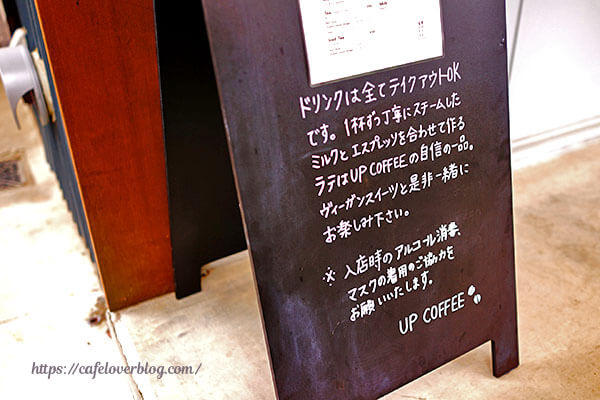 ドリンクは全てテイクアウトOK
です。1杯ずつ丁寧にスチームした
ミルクとエスプレッソを合わせて作る
ラテはUP COFFEEの自信の一品。
ヴィーガンスイーツと是非一緒に
お楽しみ下さい。
※ 入店時のアルコール消毒、
マスクの着用のご協力を
お願いいたします。
UP COFFEE
https://cafeloverblog.com/